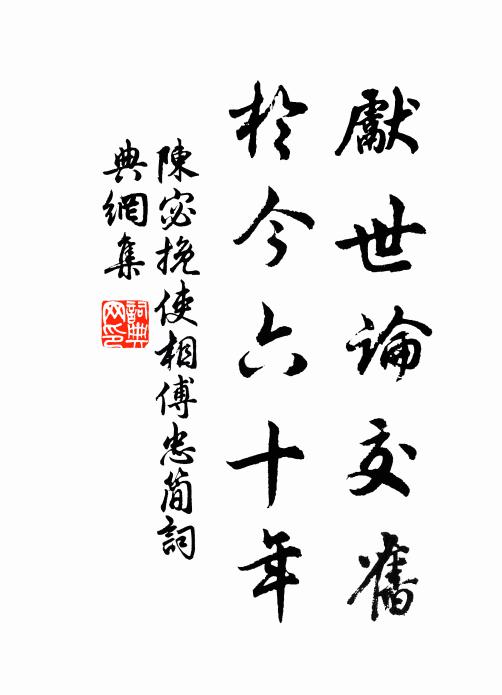 獻世論交舊
於今六十年
陳宓挽使相傅忠簡詞
典網集
詞典
网印